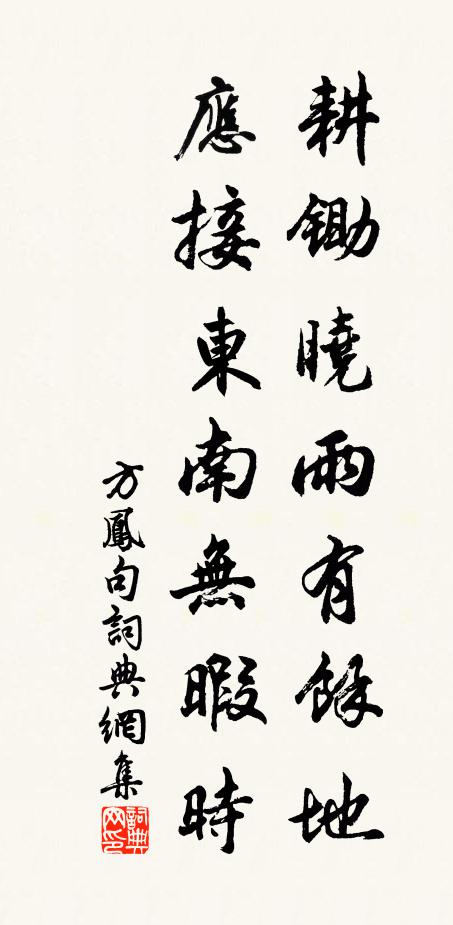 耕鋤曉雨有餘地
應接東南無暇時
方鳳句詞典網集
詞典
网印